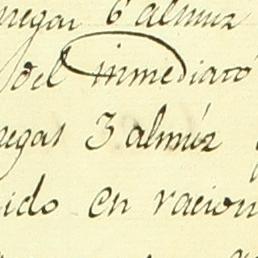 negas 6 almúz
del inmediato
negas 3 almúz
ido en racion